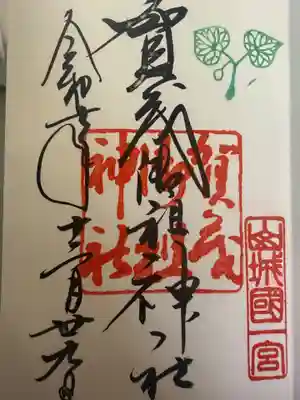 賀茂御祖神社
賀茂
御祖
神社
山城國一宮
令和年十二月廿九日